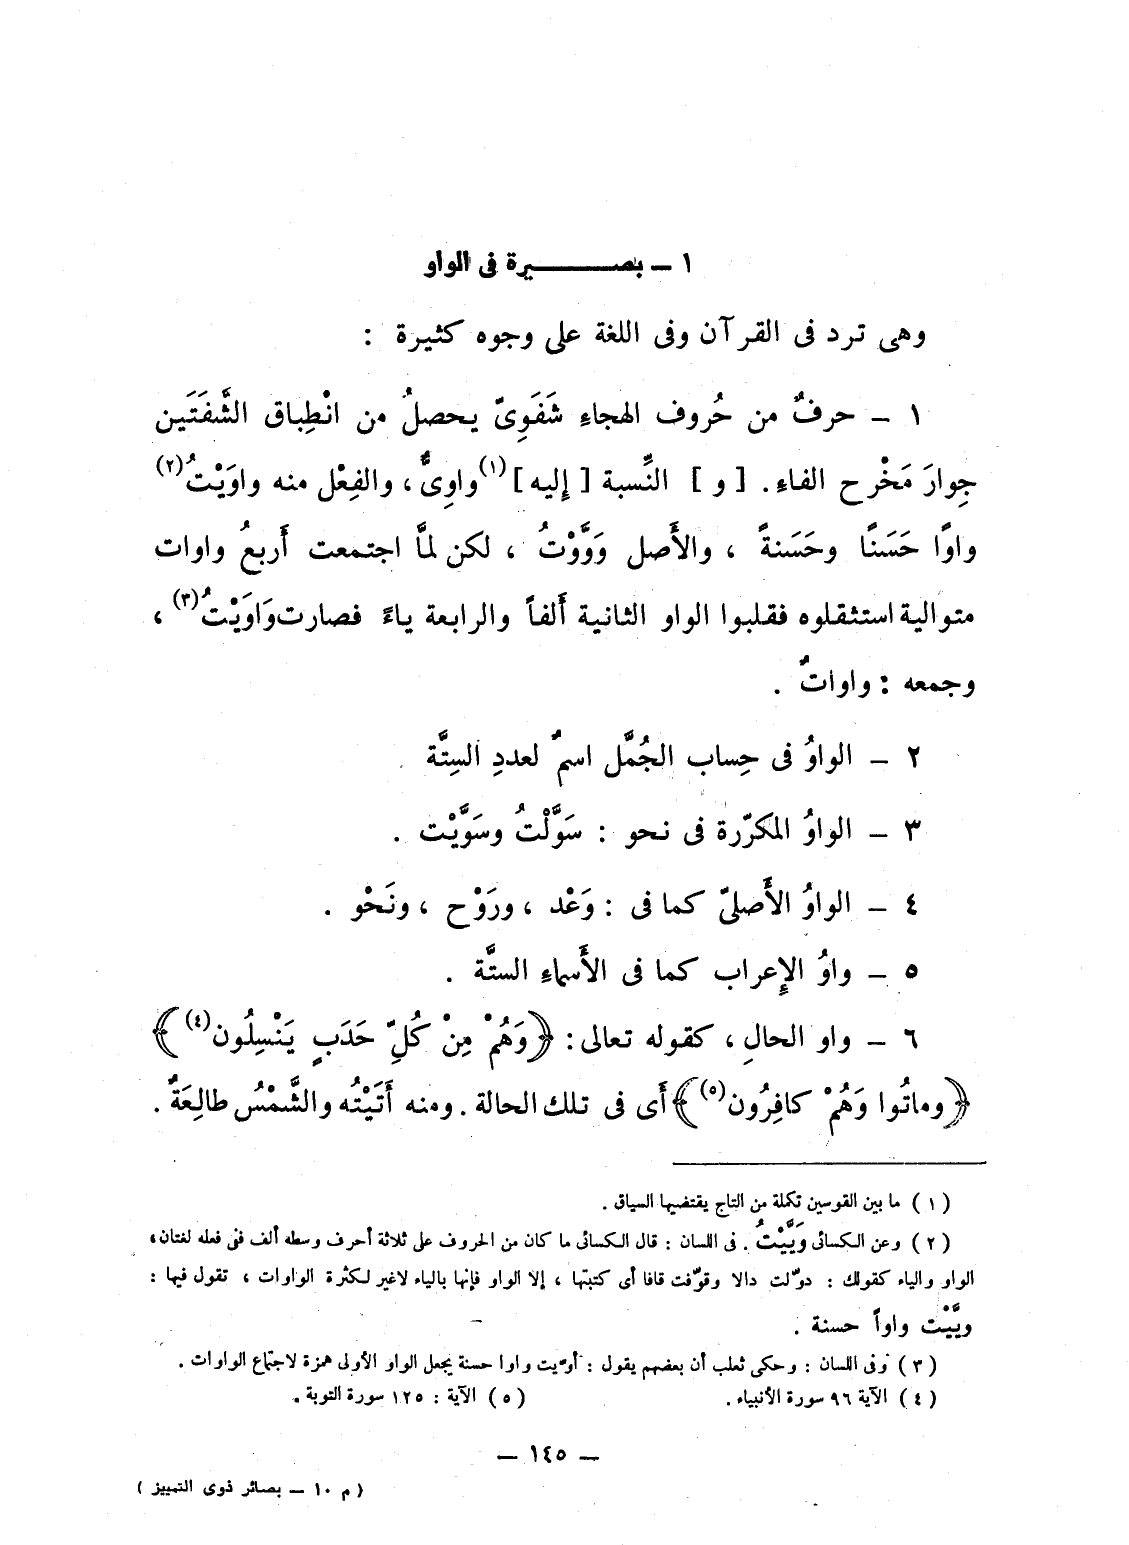 ١ – بصـــــــيرة فى الواو
وهى ترد فى القرآن وفى اللغة على وجوه كثيرة :
١ – حرفٌ من حُروف الهجاءِ شَفَوِىّ يحصلُ من انْطِباق الشَّفَتَين
جِوارَ مَخْرح الفاءِ. [ و ] النِّسبة [ إليه ] (١) واوِىٌّ ، والفِعْل منه واوَيْتُ (٢)
واوًا حَسَنًا وحَسَنةً ، والأَصل وَوَّوْتُ ، لكن لمَّا اجتمعت أَربعُ واوات
متوالية استثقلوه فقلبوا الواو الثانية أَلفاً والرابعة ياءً فصارت وَاوَيْتُ (٣) ،
وجمعه : واواتٌ .
٢ – الواوُ فى حِساب الجُمَّل اسمٌ لعددِ السِتَّة
٣ – الواوُ المكرّرة فى نحو : سَوَّلْتُ وسَوَّيْت .
٤ – الواوُ الأَصلىّ كما فى : وَعْد ، ورَوْح ، ونَحْو .
٥ – واوُ الإِعراب كما فى الأَسماءِ الستَّة .
٦ – واو الحالِ ، كقوله تعالى : ﴿وَهُمْ مِنْ كُلِّ حَدَبٍ يَنْسِلُون (٤)﴾
﴿وماتُوا وَهُمْ كافِرُون (٥)﴾ أَى فى تلك الحالة . ومنه أَتَيْتُه والشَّمْسُ طالِعَةٌ .
( ١ ) ما بين القوسين تكملة من التاج يقتضيها السياق .
( ٢ ) وعن الكسائى وَيَّيْتُ . فى اللسان : قال الكسائى ما كان من الحروف على ثلاثة أحرف وسطه ألف ففى فعله لغتان ،
الواو والياء كقولك : دوّلت دالا وقوّفت قافا أى كتبتها ، إلا الواو فإنها بالياء لاغير لكثرة الواوات ، تقول فيها :
ويَّيْت واواً حسنة .
( ٣ ) وفى اللسان : وحكى ثعلب أن بعضهم يقول : أوّيت واوا حسنة يجعل الواو الأولى همزة لاجتماع الواوات .
( ٤ ) الآية ٩٦ سورة الأنبياء . ( ٥ ) الآية : ١٢٥ سورة التوبة .
– ١٤٥ –
( م ١٠ – بصائر ذوى التمييز )